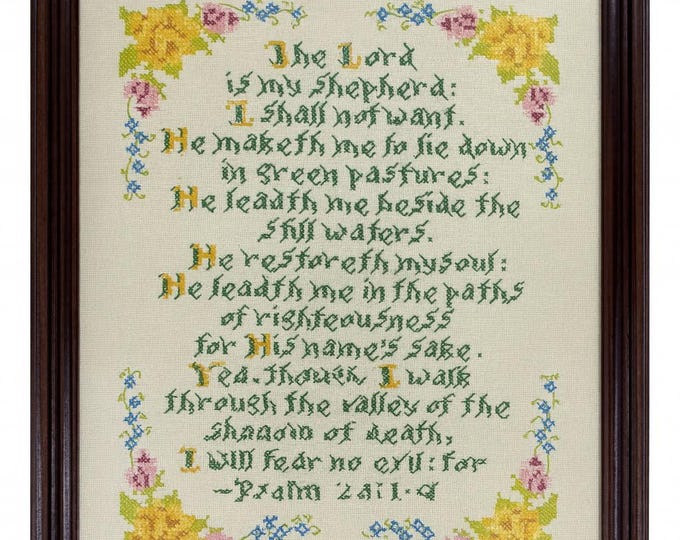 The Lord
is my shepherd:
I shall not want.
He maketh me to lie down
in green pastures:
He leadth me beside the
still waters.
He restoreth my soul:
He leadth me in the paths
of righteousness
for His name's sake.
Yea, though I walk
through the valley of the
shadow of death,
I will fear no evil: for
-Psalm 23:1-4